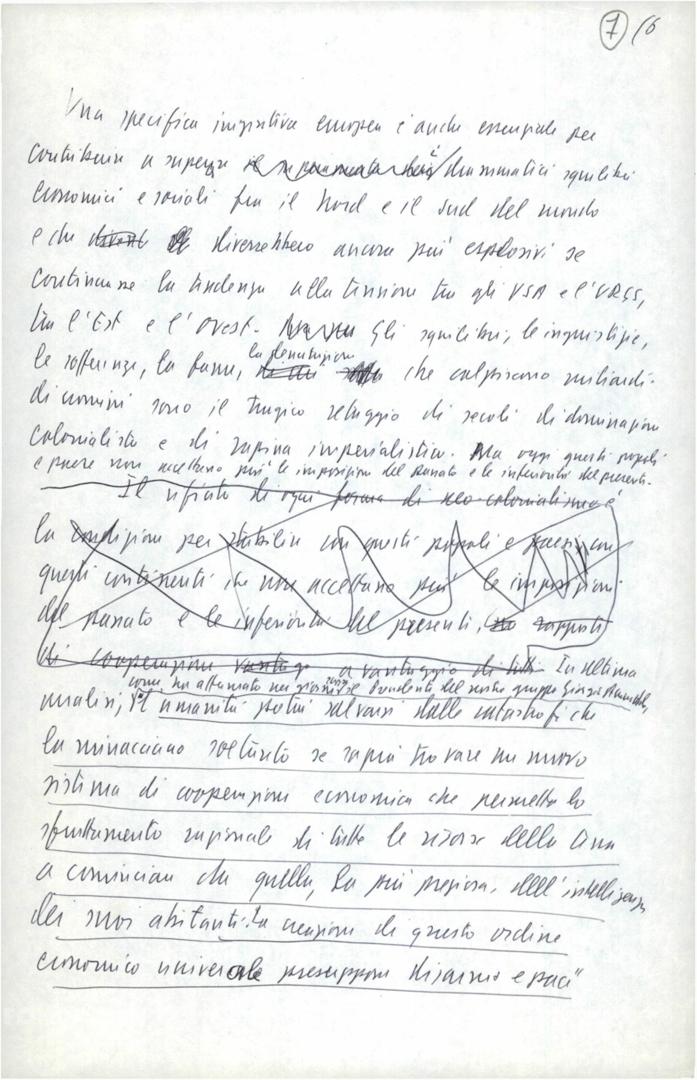 7 /6
Una specifica iniziativa europea è anche essenziale per
contribuire a superare i drammatici squilibri
economici e sociali fra il Nord e il Sud del mondo
e che diverrebbero ancora più esplosivi se
continuasse la tendenza alla tensione tra gli USA e l'URSS,
tra l'Est e l'Ovest. Gli squilibri, le ingiustizie,
le sofferenze, la fame, la denutrizione che colpiscono miliardi
di uomini sono il tragico retaggio di secoli di dominazione
colonialista e di rapina imperialistica. Ma oggi questi popoli
e paesi non accettano più le imposizioni del passato e le inferiorità del presente.
Il rifiuto di ogni forma di neo-colonialismo è
la condizione per stabilire con questi popoli e paesi, con
questi continenti che non accettano più le imposizioni
del passato e le inferiorità del presente, rapporti
di cooperazione a vantaggio di tutti. In ultima
come ha affermato nei giorni scorsi il Presidente del nostro gruppo Giorgio Amendola,
analisi, "l'umanità potrà salvarsi dalle catastrofi che
la minacciano soltanto se saprà trovare un nuovo
sistema di cooperazione economica che permetta lo
sfruttamento razionale di tutte le risorse della terra
a cominciare da quella, la più preziosa, dell'intelligenza
dei suoi abitanti. La creazione di questo ordine
economico universale presuppone disarmo e pace"